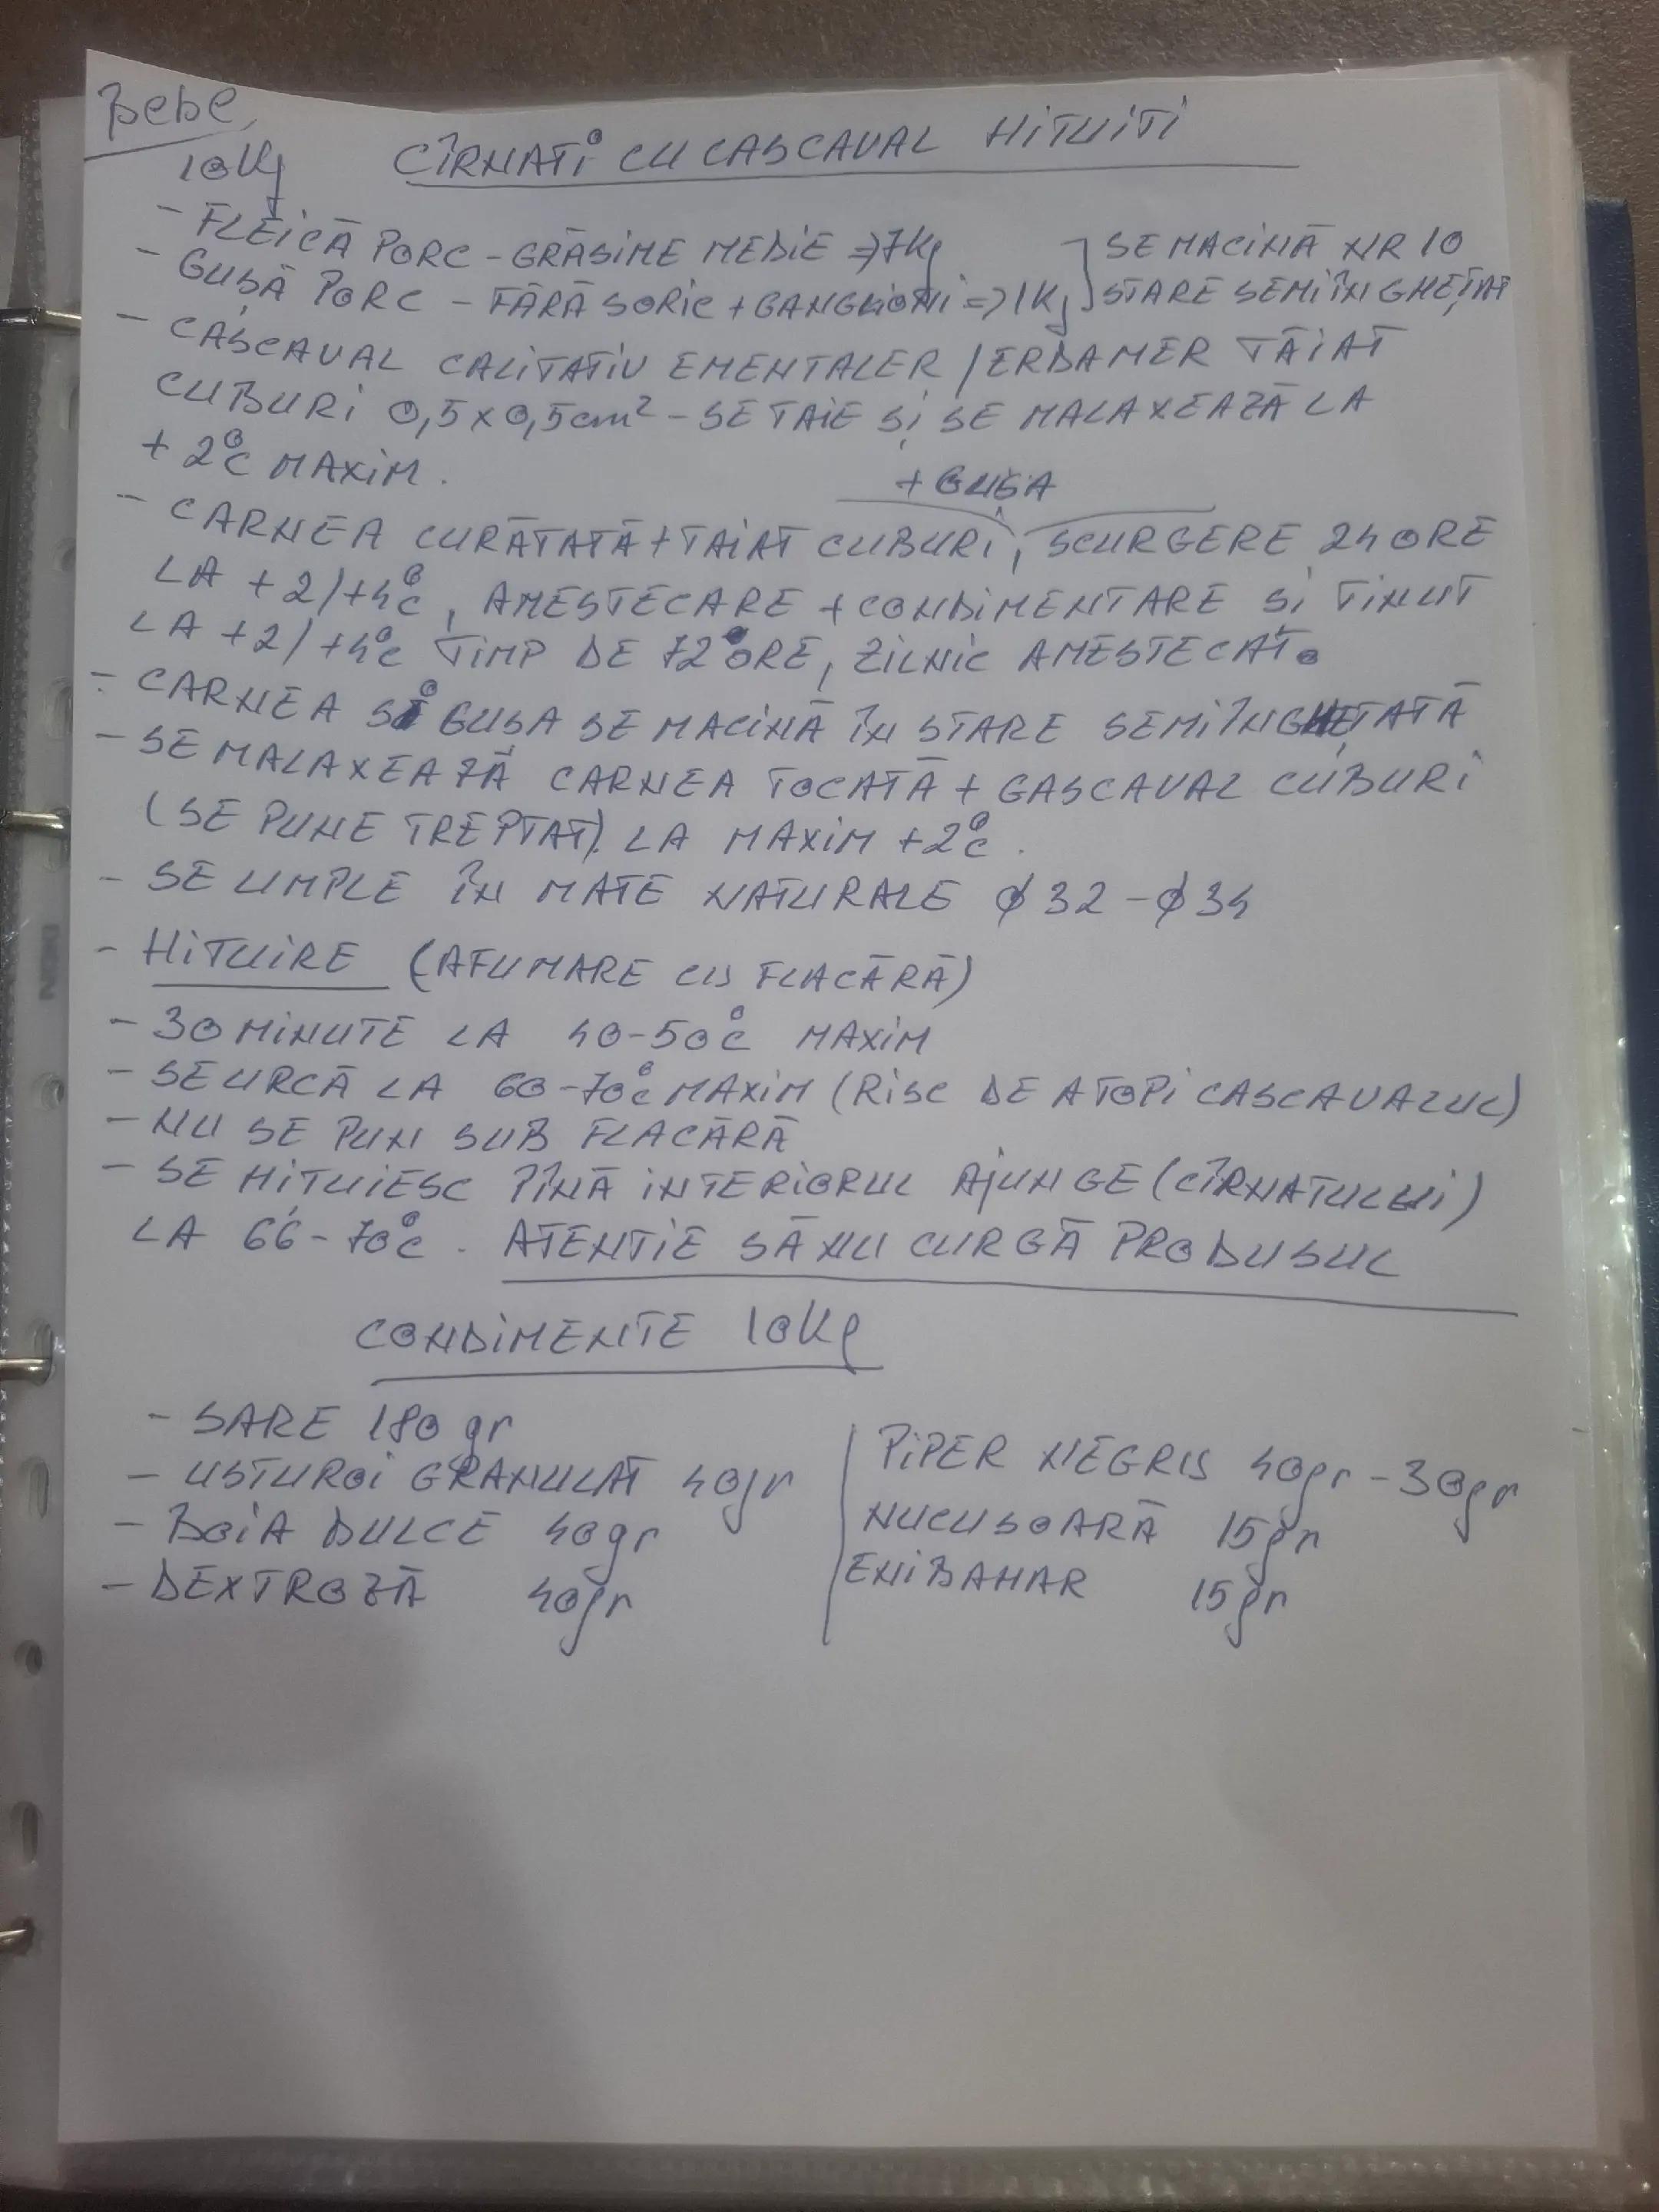 Bebe
10Kg CÎRNATI CU CASCAVAL HITUITI
- FLEICĂ PORC - GRĂSIME MEDIE => 7Kg
- GUȘĂ PORC - FĂRĂ SORIC + GANGLIONI => 1Kg
SE MACINĂ NR 10
STARE SEMIÎNGHEȚAT
- CAȘCAVAL CALITATIV EMENTALER / ERDAMER TĂIAT
CUBURI 0,5 x 0,5cm² - SE TAIE ȘI SE MALAXEAZĂ LA
+ 2°C MAXIM.
+ GUȘA
- CARNEA CURĂTATĂ + TAIAT CUBURI, SCURGERE 24 ORE
LA +2/+4°C, AMESTECARE + CONDIMENTARE SI TINUT
LA +2/+4°C TIMP DE 72 ORE, ZILNIC AMESTECAT.
- CARNEA SI GUSA SE MACINĂ ÎN STARE SEMIÎNGHEȚATĂ
- SE MALAXEAZĂ CARNEA TOCATĂ + CASCAVAL CUBURI
(SE PUNE TREPTAT) LA MAXIM +2°C.
- SE UMPLE ÎN MATE NATURALE ϕ 32 - ϕ 34
- HITUIRE (AFUMARE CU FLACĂRĂ)
- 30 MINUTE LA 40-50°C MAXIM
- SE URCĂ LA 60-70°C MAXIM (RISC DE A TOPI CASCAVALUL)
- NU SE PUN SUB FLACĂRĂ
- SE HIȚUIESC PÎNĂ INTERIORUL AJUNGE (CÎRNATULUI)
LA 66-70°C. ATENTIE SĂ NU CURGĂ PRODUSUL
CONDIMENTE 10Kg
- SARE 180 gr
- USTUROI GRANULAT 40gr
- BOIA DULCE 40gr
- DEXTROZĂ 40gr
PIPER NEGRU 40gr - 30gr
NUCUSOARĂ 15gr
ENIBAHAR 15gr